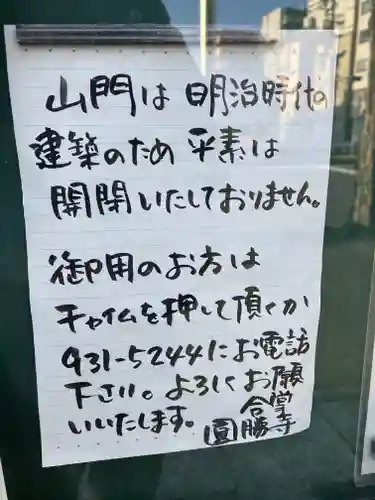 山門は明治時代の
建築のため平素は
開閉いたしておりません。
御用のお方は
チャイムを押して頂くか
931-5244にお電話
下さい。よろしくお願
いいたします。
圓勝寺